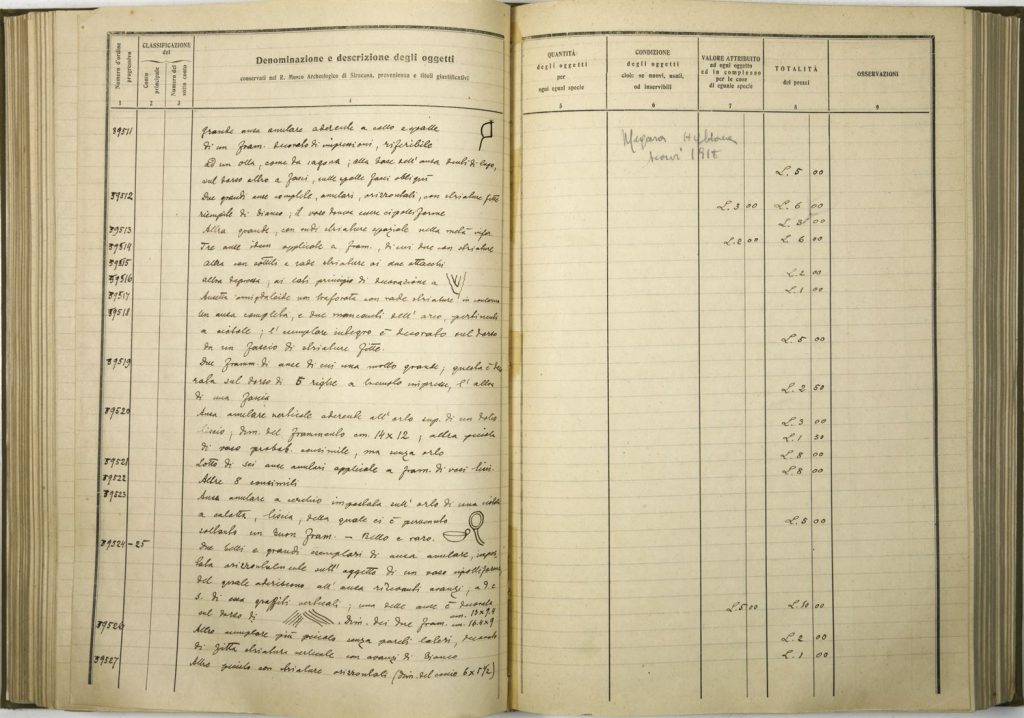 Numero d'ordine progressivo
CLASSIFICAZIONE del
Conto principale
Numero del sotto conto
Denominazione e descrizione degli oggetti
conservati nel R. Museo Archeologico di Siracusa, provenienza e titoli giustificativi
1 2 3 4
89511 Grande ansa anulare aderente a collo e spalle
di un fram. decorato di impressioni, riferibile
ad un olla, come da sagoma; alla base dell'ansa
sul dorso altro a fasci, sulle spalle fasci obliqui
89512 Due grandi anse complete, anulari, orizzontali, con striature fitte
riempite di bianco; il vaso doveva essere cipolliforme
89513 Altra grande, con striature spaziate nella metà infer.
89514 Tre anse idem applicate a fram., di cui due con striature
89515 altra con sottili e rade striature ai due attacchi
89516 altra depressa, ai lati principio di decorazione a
89517 Ansetta amigdaloide non traforata con rade striature in contorno
89518 un ansa completa, e due mancanti dell'arco, pertinenti
a ciotole; l'esemplare integro è decorato sul dorso
da un fascio di striature fitte.
89519 Due framm. di anse di cui una molto grande; questa è deco
rata sul dorso di 5 righe a tremolo impresse, l'altra
di una fascia
89520 Ansa anulare verticale aderente all'orlo sup. di un dolio
liscio; dim. del frammento cm. 14 x 12; altra piccola
di vaso probab. consimile, ma senza orlo
89521 Lotto di sei anse anulari applicate a fram. di vasi lisci.
89522 Altre 8 consimili
89523 Ansa anulare a cerchio impostata sull'orlo di una ciotola
a calotta, liscia, della quale ci è pervenuto
soltanto un buon fram. – Bello e raro.
89524-25 Due belli e grandi esemplari di ansa anulare, impos
tata orizzontalmente sull'aggetto di un vaso cipolliforme
del quale aderiscono all'ansa rilevanti avanzi, a d. e
s. di essa graffiti verticali; una delle anse è decorata
sul dorso di . Dim. dei due fram. cm. 13 x 9.4
cm. 16.4 x 9
89526 Altro esemplare più piccolo senza pareti laterali, decorato
di fitta striatura verticale con avanzi di bianco
89527 Altro piccolo con striature orizzontali (Dim. del coccio 6 x 5 1/2)
QUANTITÀ
degli oggetti
per
ogni egual specie
CONDIZIONE
degli oggetti
cioè: se nuovi, usati,
od inservibili
VALORE ATTRIBUITO
ad ogni oggetto
ed in complesso
per le cose
di eguale specie
TOTALITÀ
dei prezzi
OSSERVAZIONI
5 6 7 8 9
Megara Hyblaea
scavi 1918
L. 5 00
L. 3 00 L. 6 00
L. 3 00
L. 2 00 L. 6 00
L. 2 00
L. 1 00
L. 5 00
L. 2 50
L. 3 00
L. 1 50
L. 8 00
L. 8 00
L. 5 00
L. 5 00 L. 10 00
L. 2 00
L. 1 00